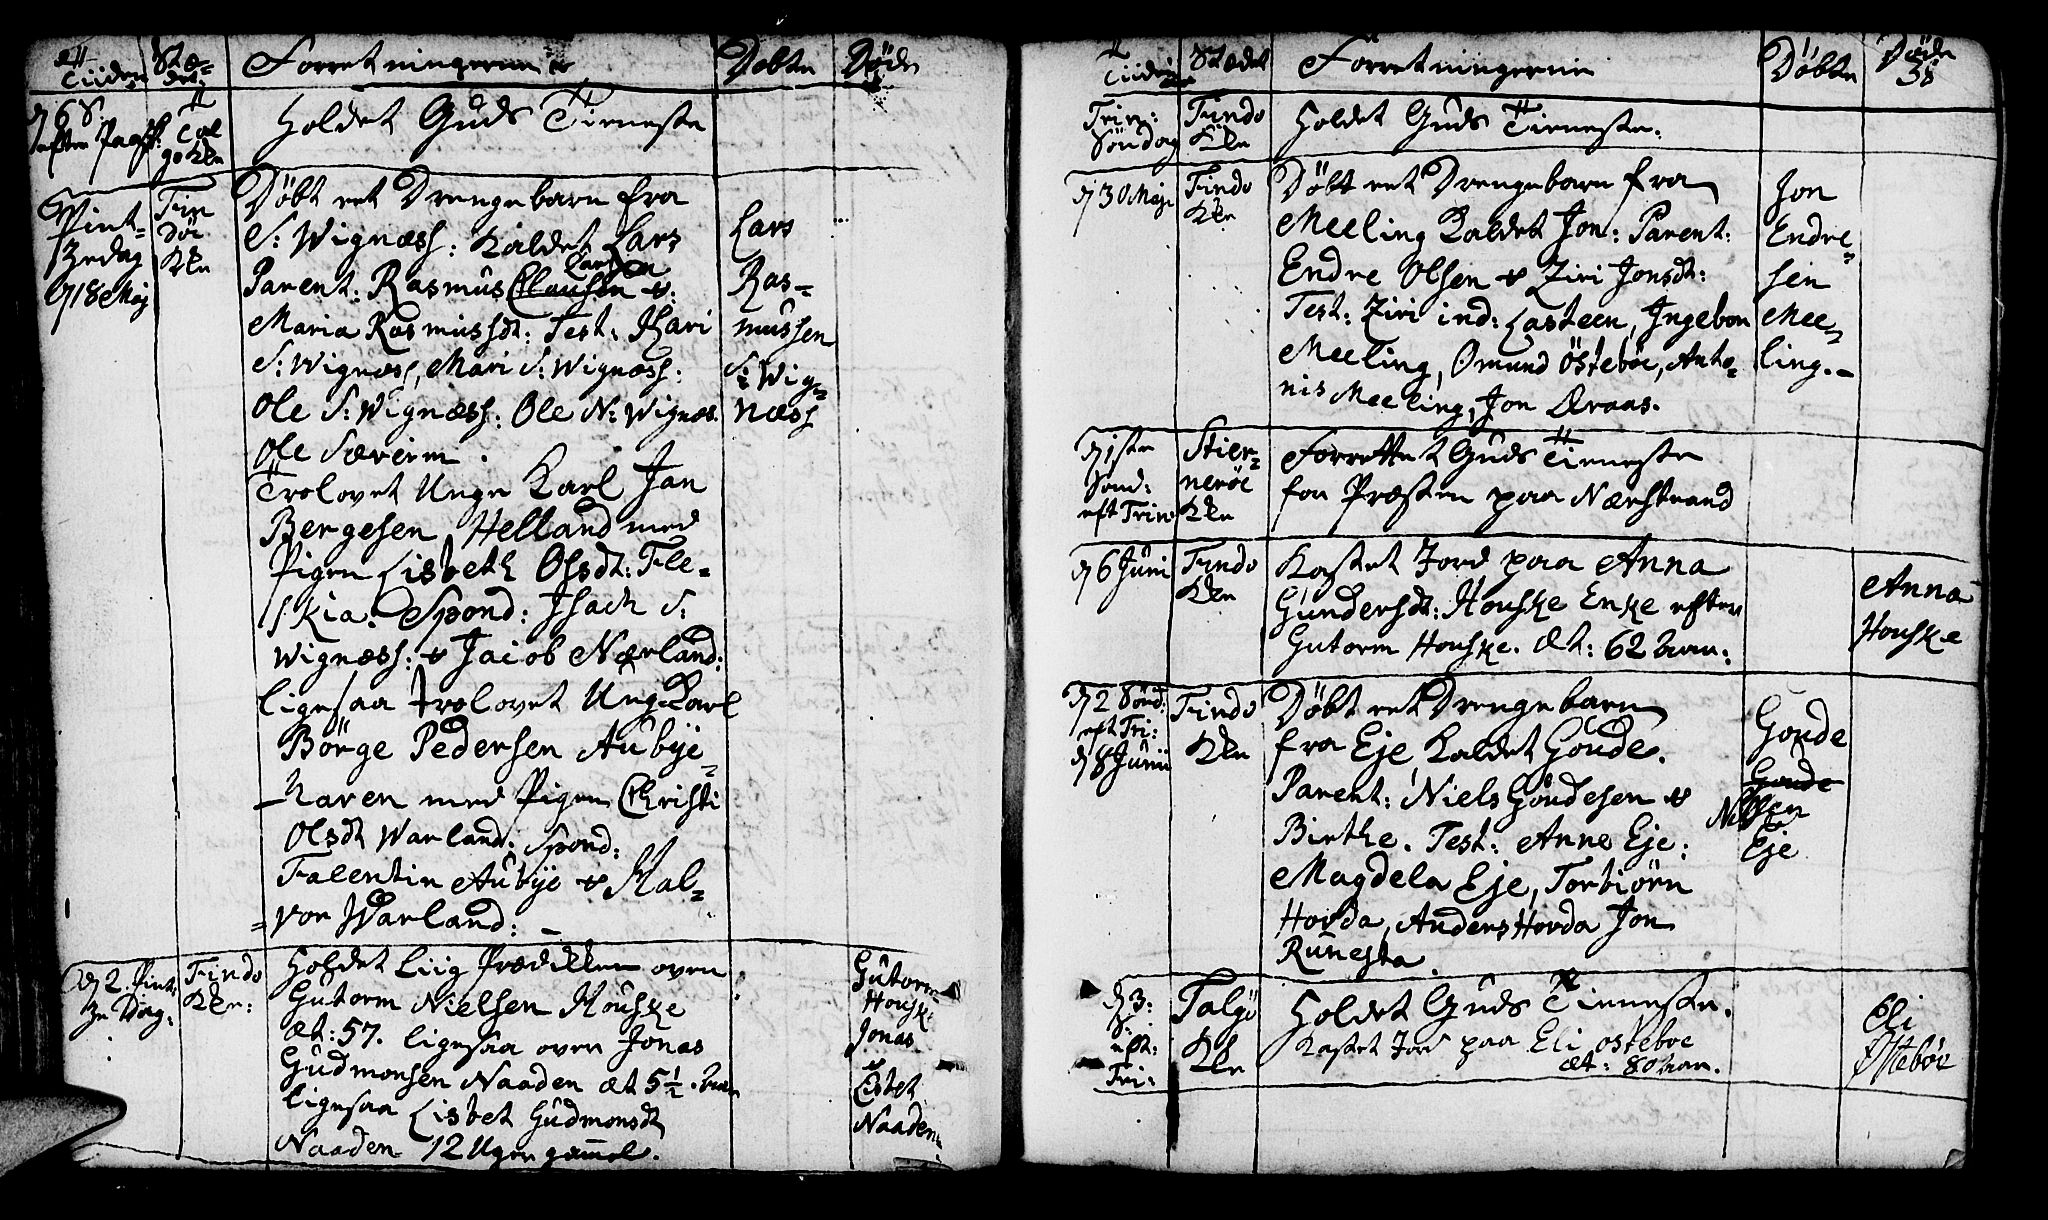 Tiiden
Stædet
Forretningerne
Døbte
Døde
d 6 S.
efter Paask:
Tal
gø Kke
Holdet Guds Tieneste
Pint-
zedag
d 18 Maj
Fin
døe
Kke
Døbt et Drengebarn fra
S: Wignæss: Kaldet Lars
Parent: Rasmus Clausen Larsen &
Maria Rasmusdt: Test: Kari
S: Wignæss, Mari S: Wignæss:
Ole S: Wignæss: Ole N: Wignæs.
Ole Særeim.
Trolovet Unge Karl Jan
Bergesen Helland med
Pigen Lisbeth Olsdt: Fle-
skia. Spond: Isach S:
Wignæss: & Jacob Nærland:
ligesaa trolovet Ung Karl
Börge Pedersen Aubÿe-
haven med Pigen Christi
Olsdt Warland: Spond:
Falentin Aubÿe & Hal-
=vor Warland: -
Lars
Ras-
mussen
S: Wig-
næss
d 2 Pint:
ze Dag:
Findø
Kke:
Holdet Liig Prædikken over
Gutorm Nielsen Houske
æt: 57. ligesaa over Jonas
Gudmonsen Naaden æt 5½ aar
ligesaa Lisbet Gudmonsdt
Naaden 12 Uger gammel.
Gutorm
Houske
Jonas
&
Lisbet
Naaden:
Tiiden
Stædet
Forretningerne
Døbte
Døde
38
Trin:
Söndag
Findø
Kke
Holdet Guds Tieneste:
d 30 Maji
Findø
Kke
Döbt et Drengebarn fra
Meeling Kaldet Jon: Parent:
Endre Olsen & Ziri Jonsdt:
Test: Ziri ind: Lasteen, Ingebor
Meeling, Omund Östeböe, Anto-
nis Meeling, Jon Araas.
Jon
Endre-
sen
Mee-
ling.-
d 1ste
Sönd:
eft Trin
Stier-
neröe
Kke
Forrettet Guds Tieneste
for Præsten paa Nærstrand
d 6 Juni
Findø
Kke
Kastet Jord paa Anna
Gundersdt: Houske Enke efter
Gutorm Houske. æt: 62 aar:
Anna
Houske
d 2 Sönd:
eft Tri:
d 8 Junii
Findø
Kke
Döbt et Drengebarn
fra Eje Kaldet Goude.
Parent: Niels Goudesen &
Birthe. Test: Anne Eje:
Magdela Eje, Torbiörn
Hovda, Anders Hovda Jon
Runesta.
Goude
Goude
Nilssen
Eje
d 3:
S:
eft:
Tri:
Talgö
Kke
Holdet Guds Tieneste.
Kastet Jord paa Eli osteboe
æt: 80 aar.
Eli
Östeböe